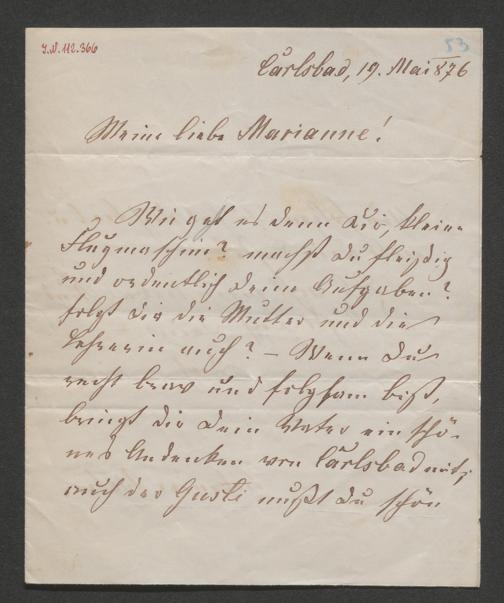 I.N. 112.366
53
Carlsbad, 19. Mai 876
Meine liebe Marianne!
Wie geht es denn Dir, kleine
Flugmaschine? machst Du fleißig
und ordentlich Deine Aufgaben?
folgst Du der Mutter und der
Lehrerin auch? – Wenn Du
recht brav und folgsam bist,
bringt Dir Dein Vater ein schö-
nes Andenken von Carlsbad mit;
auch der Gusti mußt Du schön